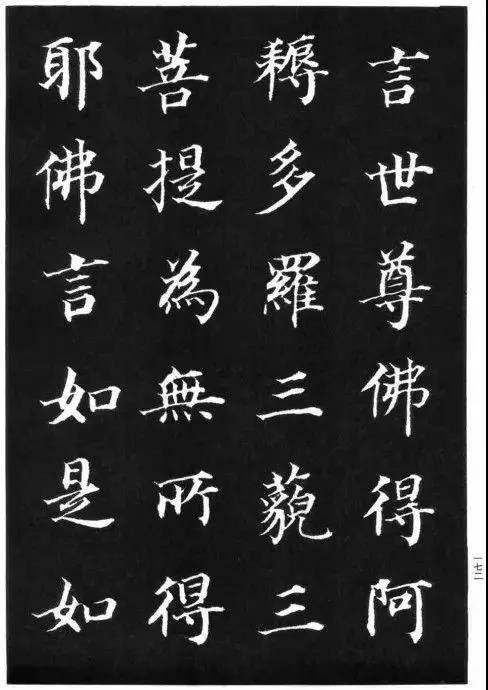 言世尊佛得阿
耨多羅三藐三
菩提為無所得
耶佛言如是如
一七二